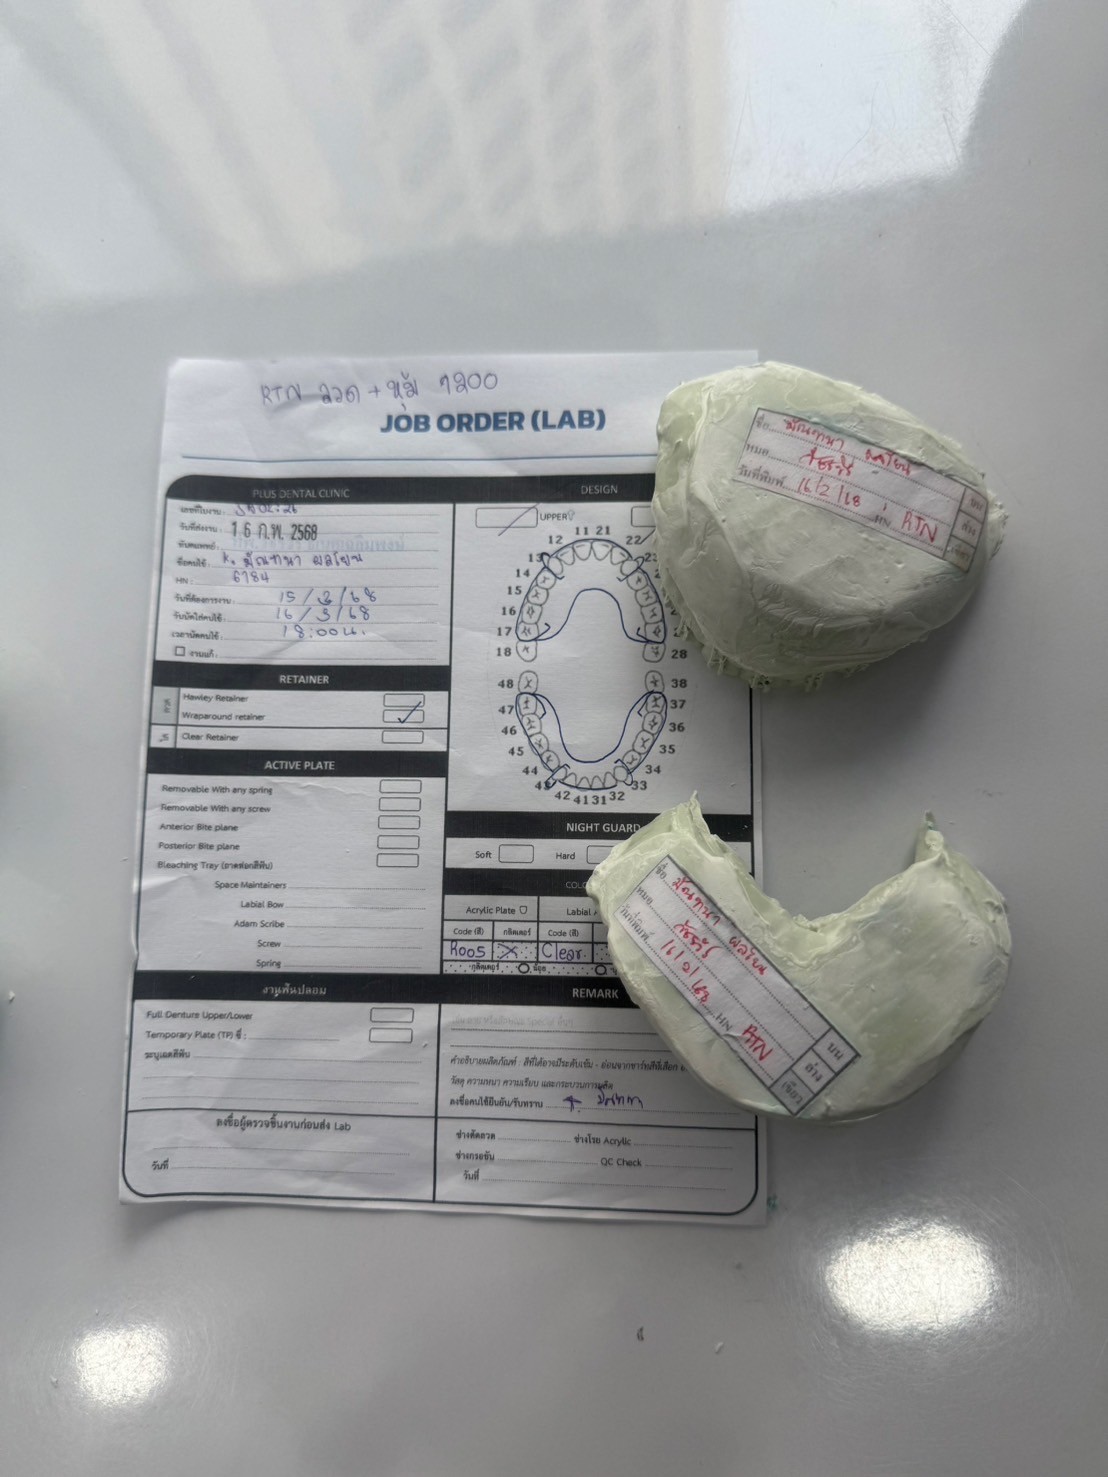 RTN ลวด + หุ้ม 7200
JOB ORDER (LAB)
PLUS DENTAL CLINIC
เลขที่ใบงาน :
วันที่ส่งงาน : 16 ก.พ. 2568
ทันตแพทย์ :
ชื่อคนไข้ : K. มัณฑนา ผลโยน
HN : 6784
วันที่ต้องการงาน : 15 / 3 / 68
วันนัดใส่คนไข้ : 16 / 3 / 68
เวลานัดคนไข้ : 18:00 น.
งานแก้ :
RETAINER
ลวด
Hawley Retainer
Wraparound retainer
ใส
Clear Retainer
ACTIVE PLATE
Removable With any spring
Removable With any screw
Anterior Bite plane
Posterior Bite plane
Bleaching Tray (ถาดฟอกสีฟัน)
Space Maintainers
Labial Bow
Adam Scribe
Screw
Spring
งานฟันปลอม
Full Denture Upper/Lower
Temporary Plate (TP) ซี่ :
ระบุเฉดสีฟัน
ลงชื่อผู้ตรวจชิ้นงานก่อนส่ง Lab
วันที่
DESIGN
UPPER
12 11 21 22
13 23
14
15
16
17
18 28
48 38
47 37
46 36
45 35
44 34
43 33
42 41 31 32
NIGHT GUARD
Soft Hard
Acrylic Plate Labial
Code (สี) กลิตเตอร์ Code (สี)
R005 Clear
กลิตเตอร์ น้อย
REMARK
คำอธิบายผลิตภัณฑ์ : สีที่ได้อาจมีระดับเข้ม - อ่อนจากชาร์ทสีที่เลือก
วัสดุ ความหนา ความเรียบ และกระบวนการผลิต
ลงชื่อคนไข้ยืนยัน/รับทราบ มัณฑนา
ช่างดัดลวด ช่างโรย Acrylic
ช่างกรอขัด QC Check
วันที่
ชื่อ มัณฑนา ผลโยน
หมอ
วันที่พิมพ์ 16/2/68 HN RTN
บน
ล่าง
เขียว
ชื่อ มัณฑนา ผลโยน
หมอ
วันที่พิมพ์ 16/2/68 HN RTN
บน
ล่าง
เขียว